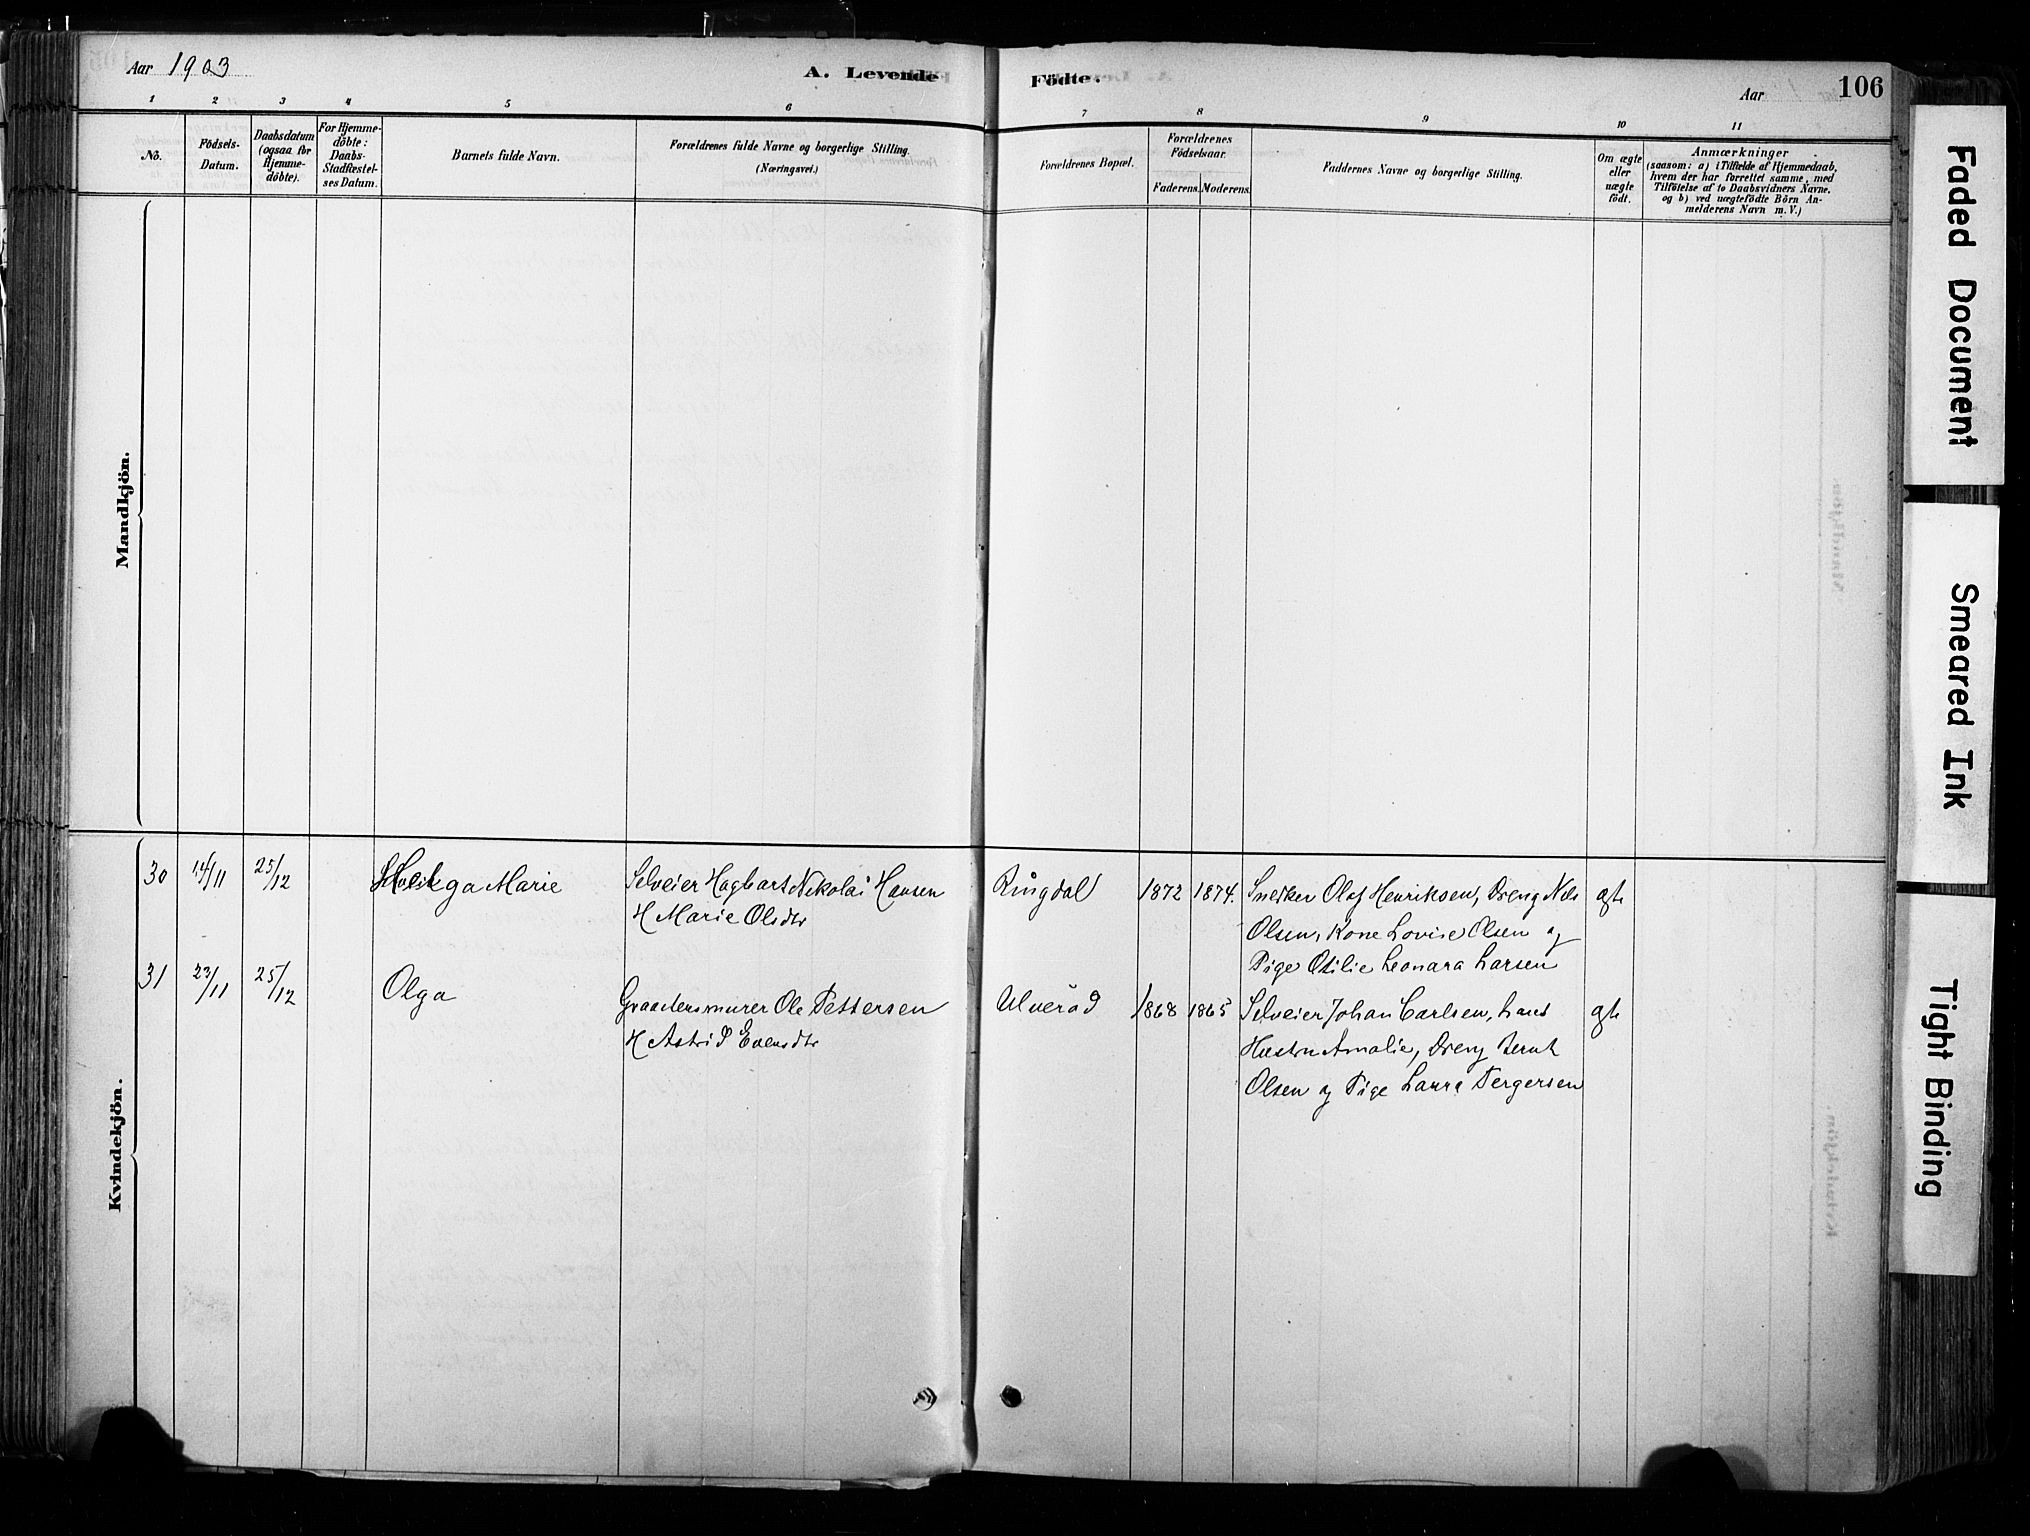 Aar 1903
A. Levende
Födte.
Aar
106
1
2
3
4
5
6
7
8
9
10
11
No.
Födsels-Datum.
Daabsdatum (ogsaa for Hjemme-döbte).
For Hjemme-döbte: Daabs-Stadfæstel-ses Datum.
Barnets fulde Navn.
Forældrenes fulde Navne og borgerlige Stilling. (Næringsvei.)
Forældrenes Bopæl.
Forældrenes Födselsaar.
Faderens.
Moderens.
Faddernes Navne og borgerlige Stilling.
Om ægte eller uægte födt.
Anmærkninger
(saasom: a) i Tilfælde af Hjemmedaab,
hvem der har forrettet samme, med
Tilföielse af to Daabsvidners Navne.
og b) ved uægtefödte Börn An-
melderens Navn m. V.)
Mandkjön.
Kvindekjön.
30 14/11 25/12 Helga Marie Selveier Hagbart Nikolai Hansen Ringdal 1872 1874. Snedker Olaf Henriksen, Dreng Nils ægte
H Marie Olsdtr Olsen, Kone Lovise Olsen og
Pige Otilie Leonara Larsen
31 23/11 25/12 Olga Graastensmurer Ole Pettersen Ulverød 1868 1865 Selveier Johan Carlsen, hans ægte
H Astrid Evensdtr Hustru Amalie, Dreng Bernt
Olsen og Pige Laura Tergersen
Faded Document
Smeared Ink
Tight Binding